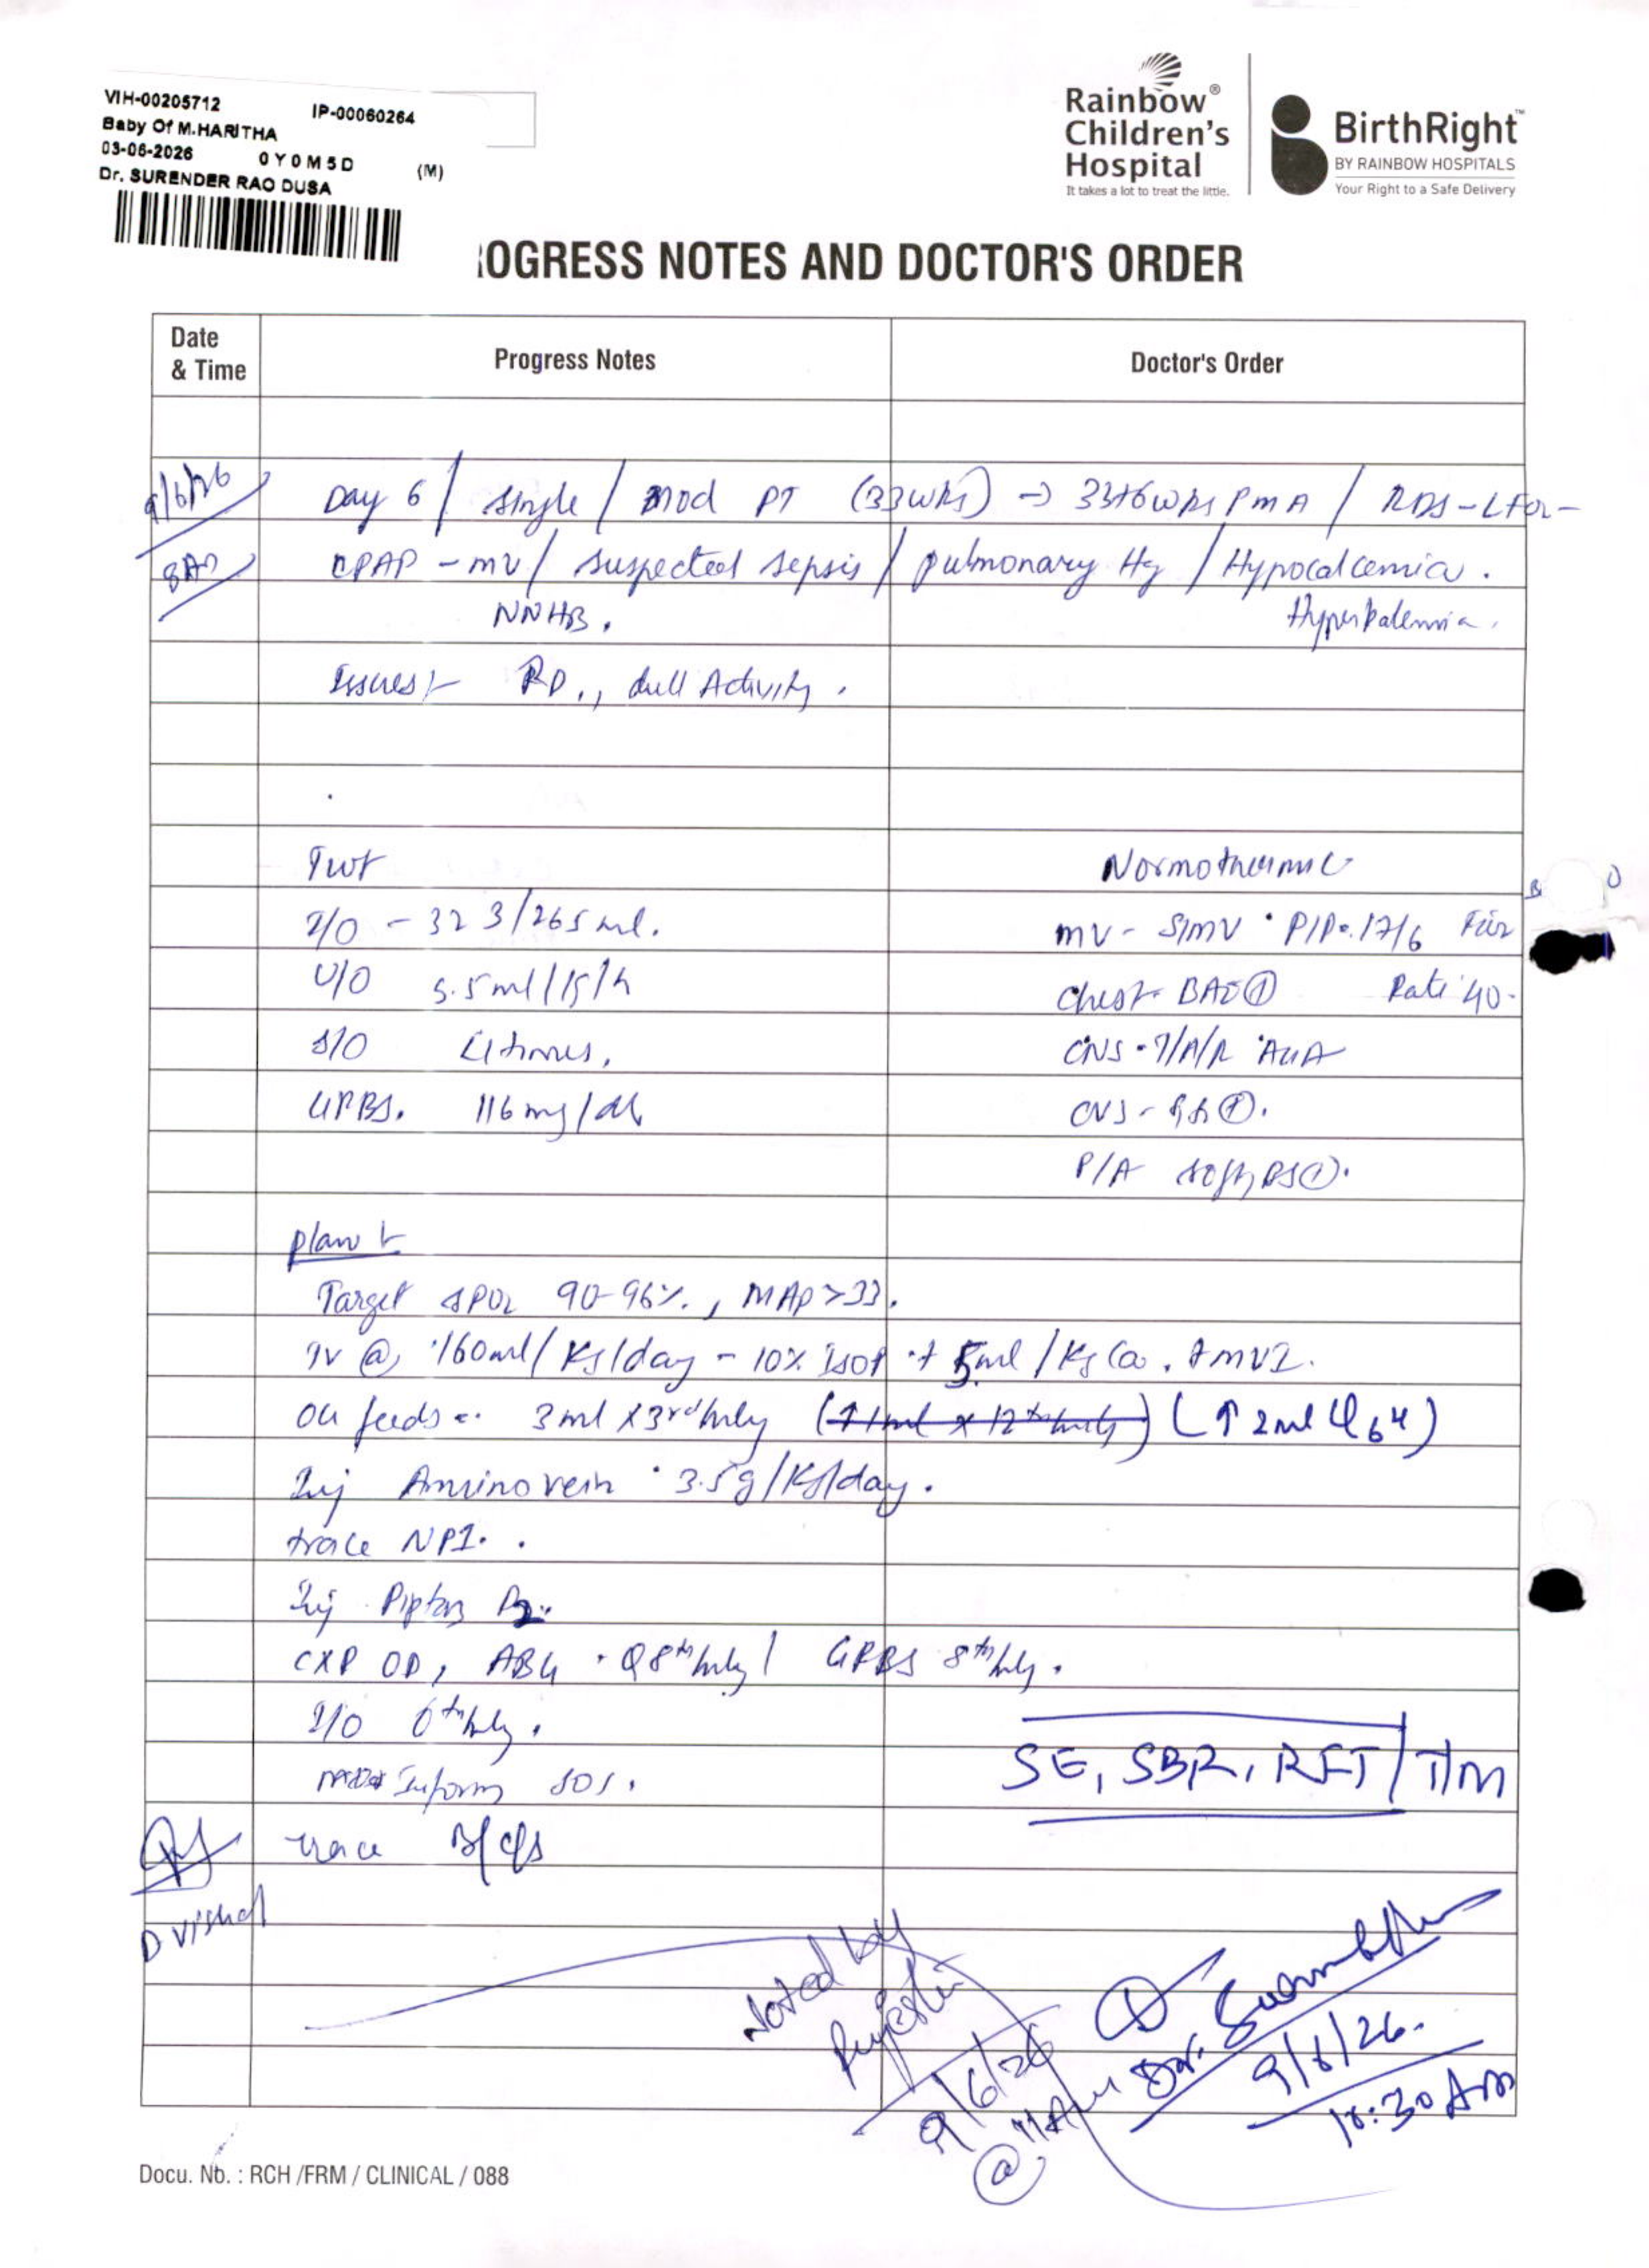 VIH-00205712 IP-00060264
Baby Of M.HARITHA
03-06-2026 0Y0M5D (M)
Dr. SURENDER RAO DUSA
Rainbow® Children's Hospital
It takes a lot to treat the little.
BirthRight™
BY RAINBOW HOSPITALS
Your Right to a Safe Delivery
ROGRESS NOTES AND DOCTOR'S ORDER
Date & Time Progress Notes Doctor's Order
9/6/26 Day 6 / single / mod PT (33wks) → 33+6wks PMA / RDS - LFOr -
8Am CPAP - mv / suspected sepsis / pulmonary Hg / Hypocalcemia.
NNHB. Hyperkalemia.
Issues:- RD., dull Activity.
Twt Normothermic
I/O - 323/265ml. mv - SIMV PIP. 17/6
U/O 5.5ml/kg/h Chest- BAE⊕ Rate 40.
S/O times,
GRBS. 116mg/dl
P/A soft, BS⊕.
Plan:-
Target SPO2 90-96%., MAP>33.
IV @ 160ml/kg/day - 10% ISOP + 5ml/kg Ca. + MVI.
OG feeds 3ml x 3rd hrly (↑1ml x 12th hrly) (↑ 2ml Q6H)
Inj Aminovein 3.5g/kg/day.
trace NPI.
Inj Piptaz
CXR OD, ABG Q8th hrly / GRBS 8th hrly.
I/O 6th hrly.
Inform SOS.
SE, SBR, RFT / T/M
trace B/C/S
D Vishal
Noted by
9/6/26
@ 11Am
Dr.
9/6/26.
10:30 Am
Docu. No. : RCH /FRM / CLINICAL / 088